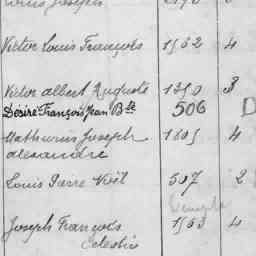 Louis Joseph
Victor Louis François 1562 4
Victor Albert Auguste 1350 3
Désiré François Jean Bte 506 D
Mathurin Joseph 1809 4
Alexandre
Louis Pierre Noël 507 2
Joseph François 1563 4
Célestin